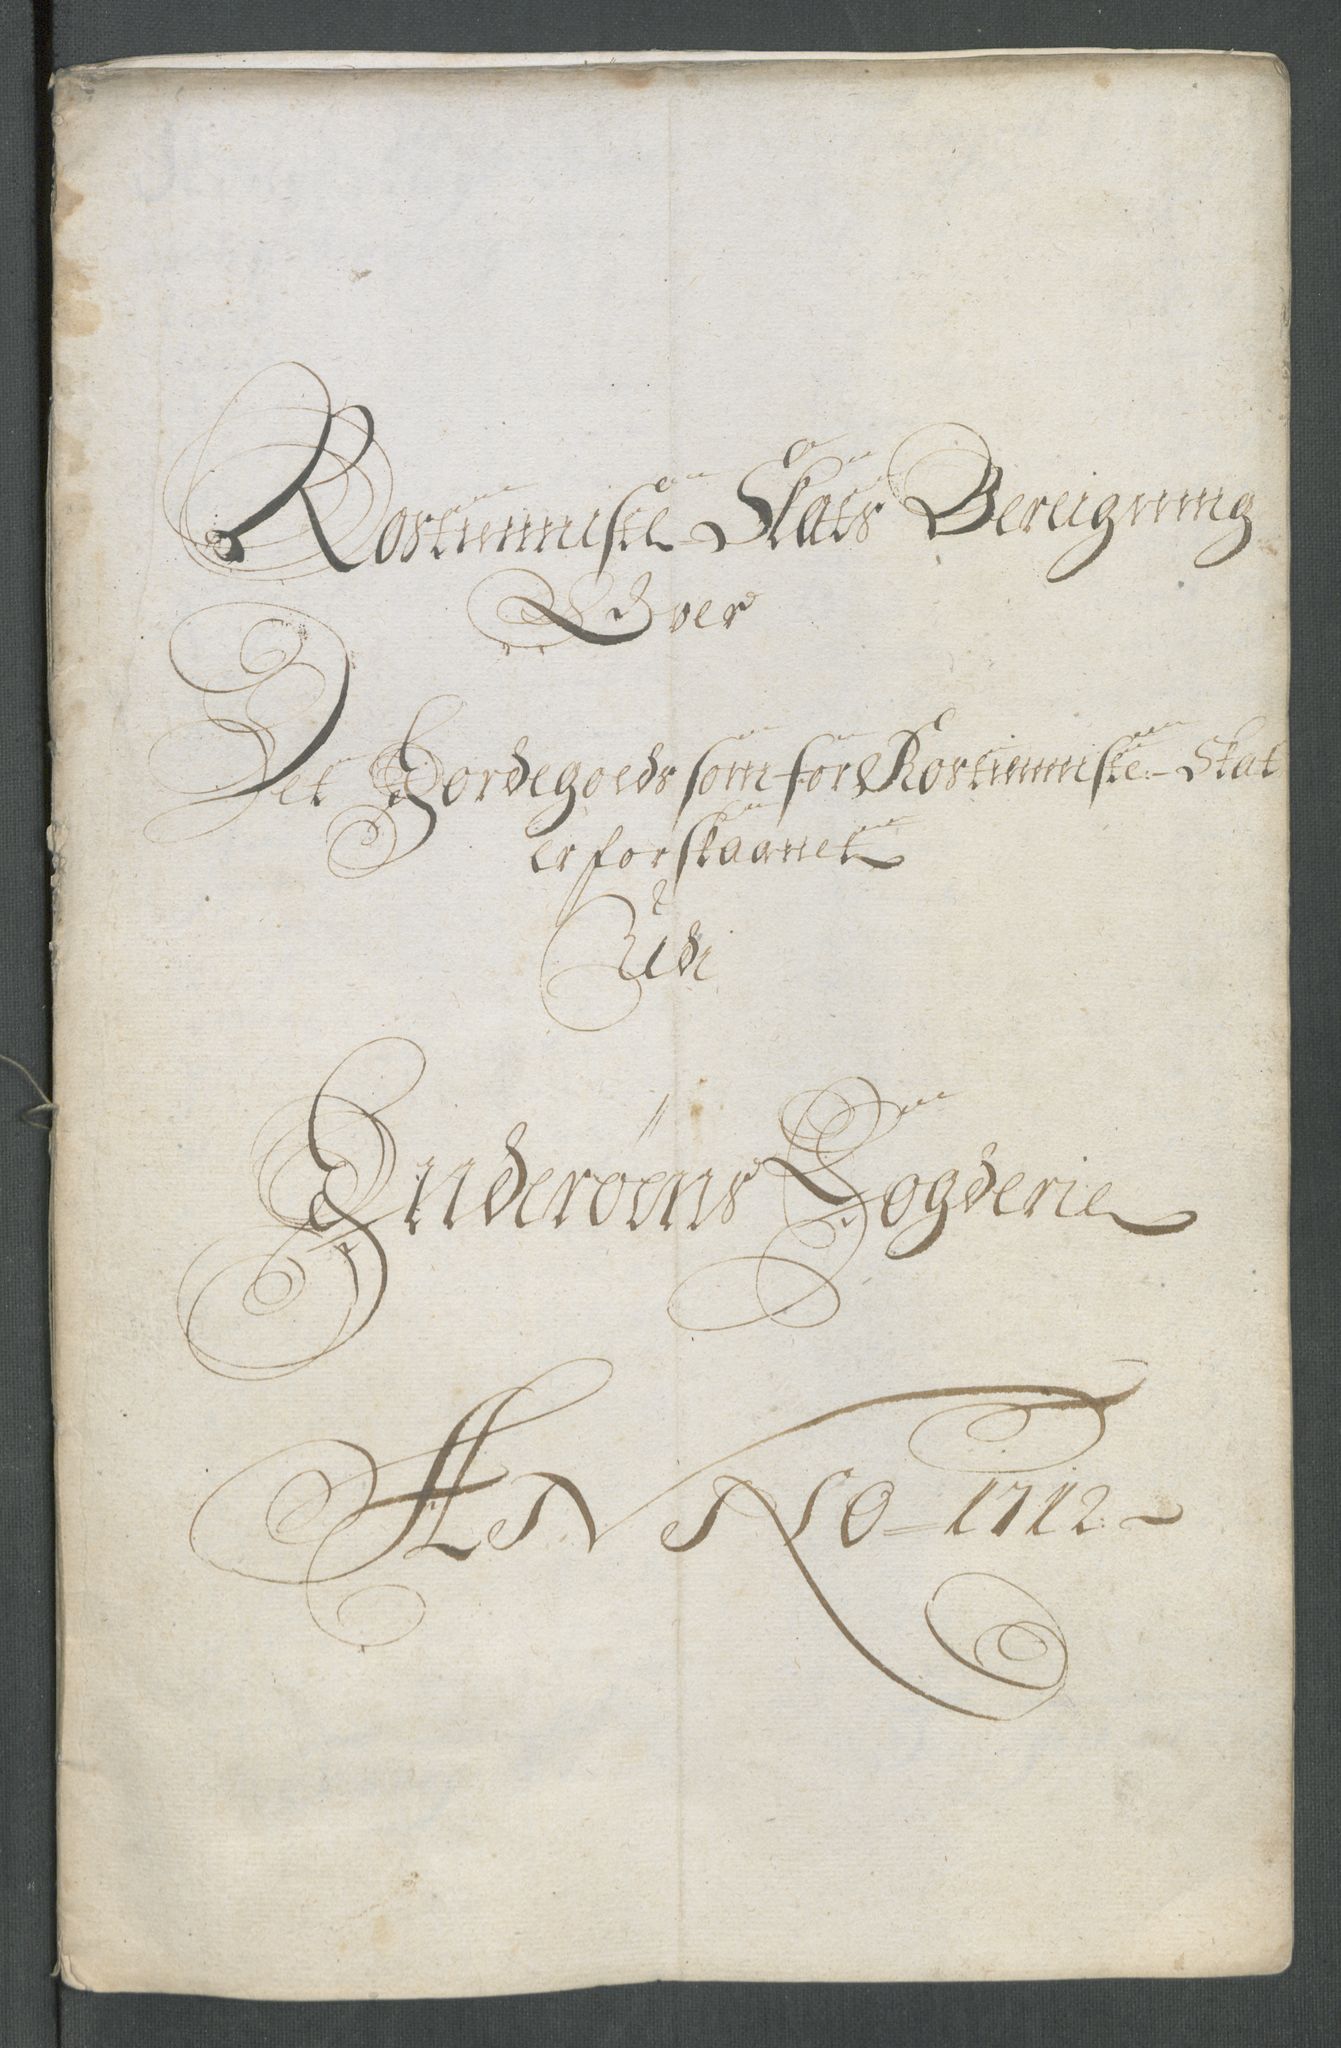 Rostienniste Skats Bereigning
Over
Det Jordegoeds som for Rostienniste - Skat
er forskaanet
Udi
Inderöens Fogderie
ANNO - 1712.